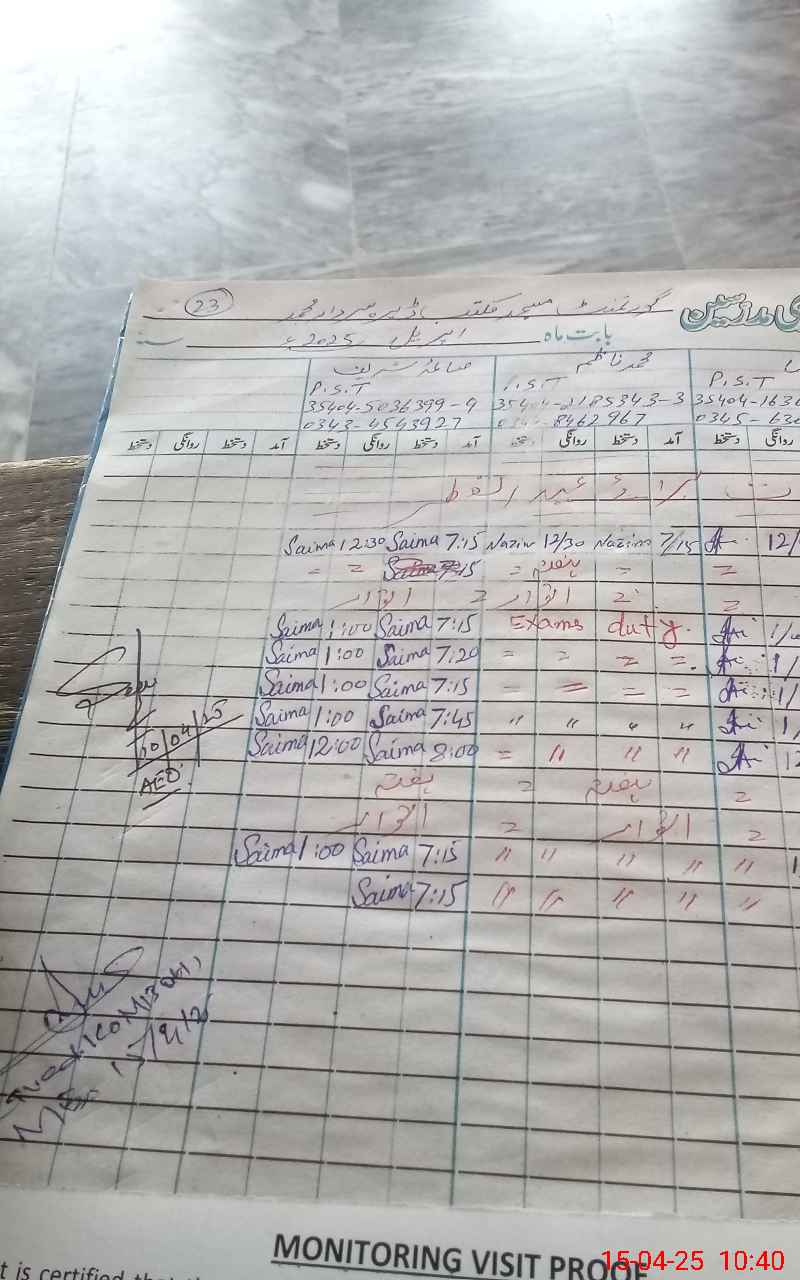 23 گورنمنٹ مسجد مکتب ڈیرہ سردار محمد
بابت ماہ اپریل 2025ء سنہ
صائمہ شریف محمد ناظم
P.S.T P.S.T P.S.T
35404-5036399-9 35404-2185343-3 35404-1636
0343-4543927 8462967 0345-636
دستخط روانگی دستخط آمد دستخط روانگی دستخط آمد دستخط روانگی دستخط آمد دستخط روانگی
عید الفطر
Saima 12:30 Saima 7:15 Nazim 12/30 Nazim 7/15 12/
= = 7:15 = ہفتہ = =
اتوار = اتوار = =
Saima 1:00 Saima 7:15 Exams duty.
Saima 1:00 Saima 7:20 = = = =.
Saima 1:00 Saima 7:15 = = = =
Saima 1:00 Saima 7:45 " " " "
Saima 12:00 Saima 8:00 = " " "
ہفتہ = ہفتہ =
اتوار = اتوار =
Saima 1:00 Saima 7:15 " " " " "
Saima 7:15 " " " " "
/04/25
AEO
MONITORING VISIT PROOF
t is certified that
15-04-25 10:40